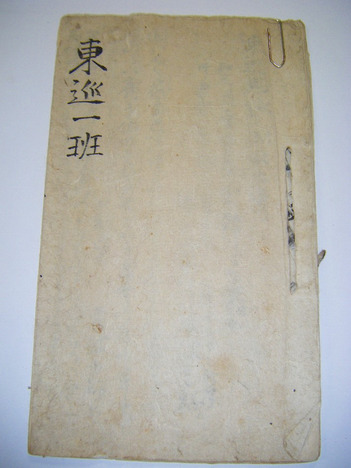 東巡一班